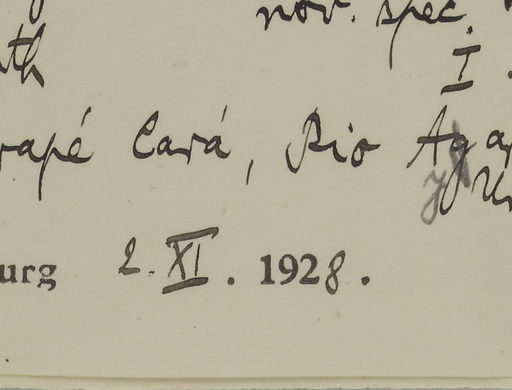 nov. spec.
th
I.
rapé Cará, Rio Agar
y
urg 2. XI. 1928.